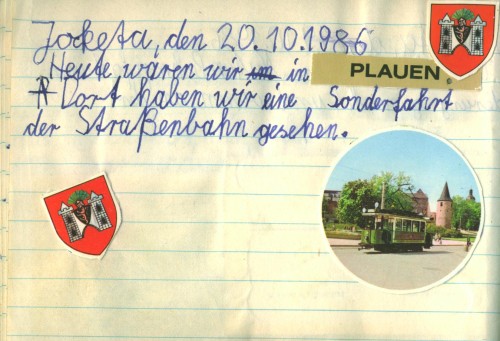 Jocketa, den 20.10.1986
Heute waren wir in PLAUEN.
Dort haben wir eine Sonderfahrt
der Straßenbahn gesehen.